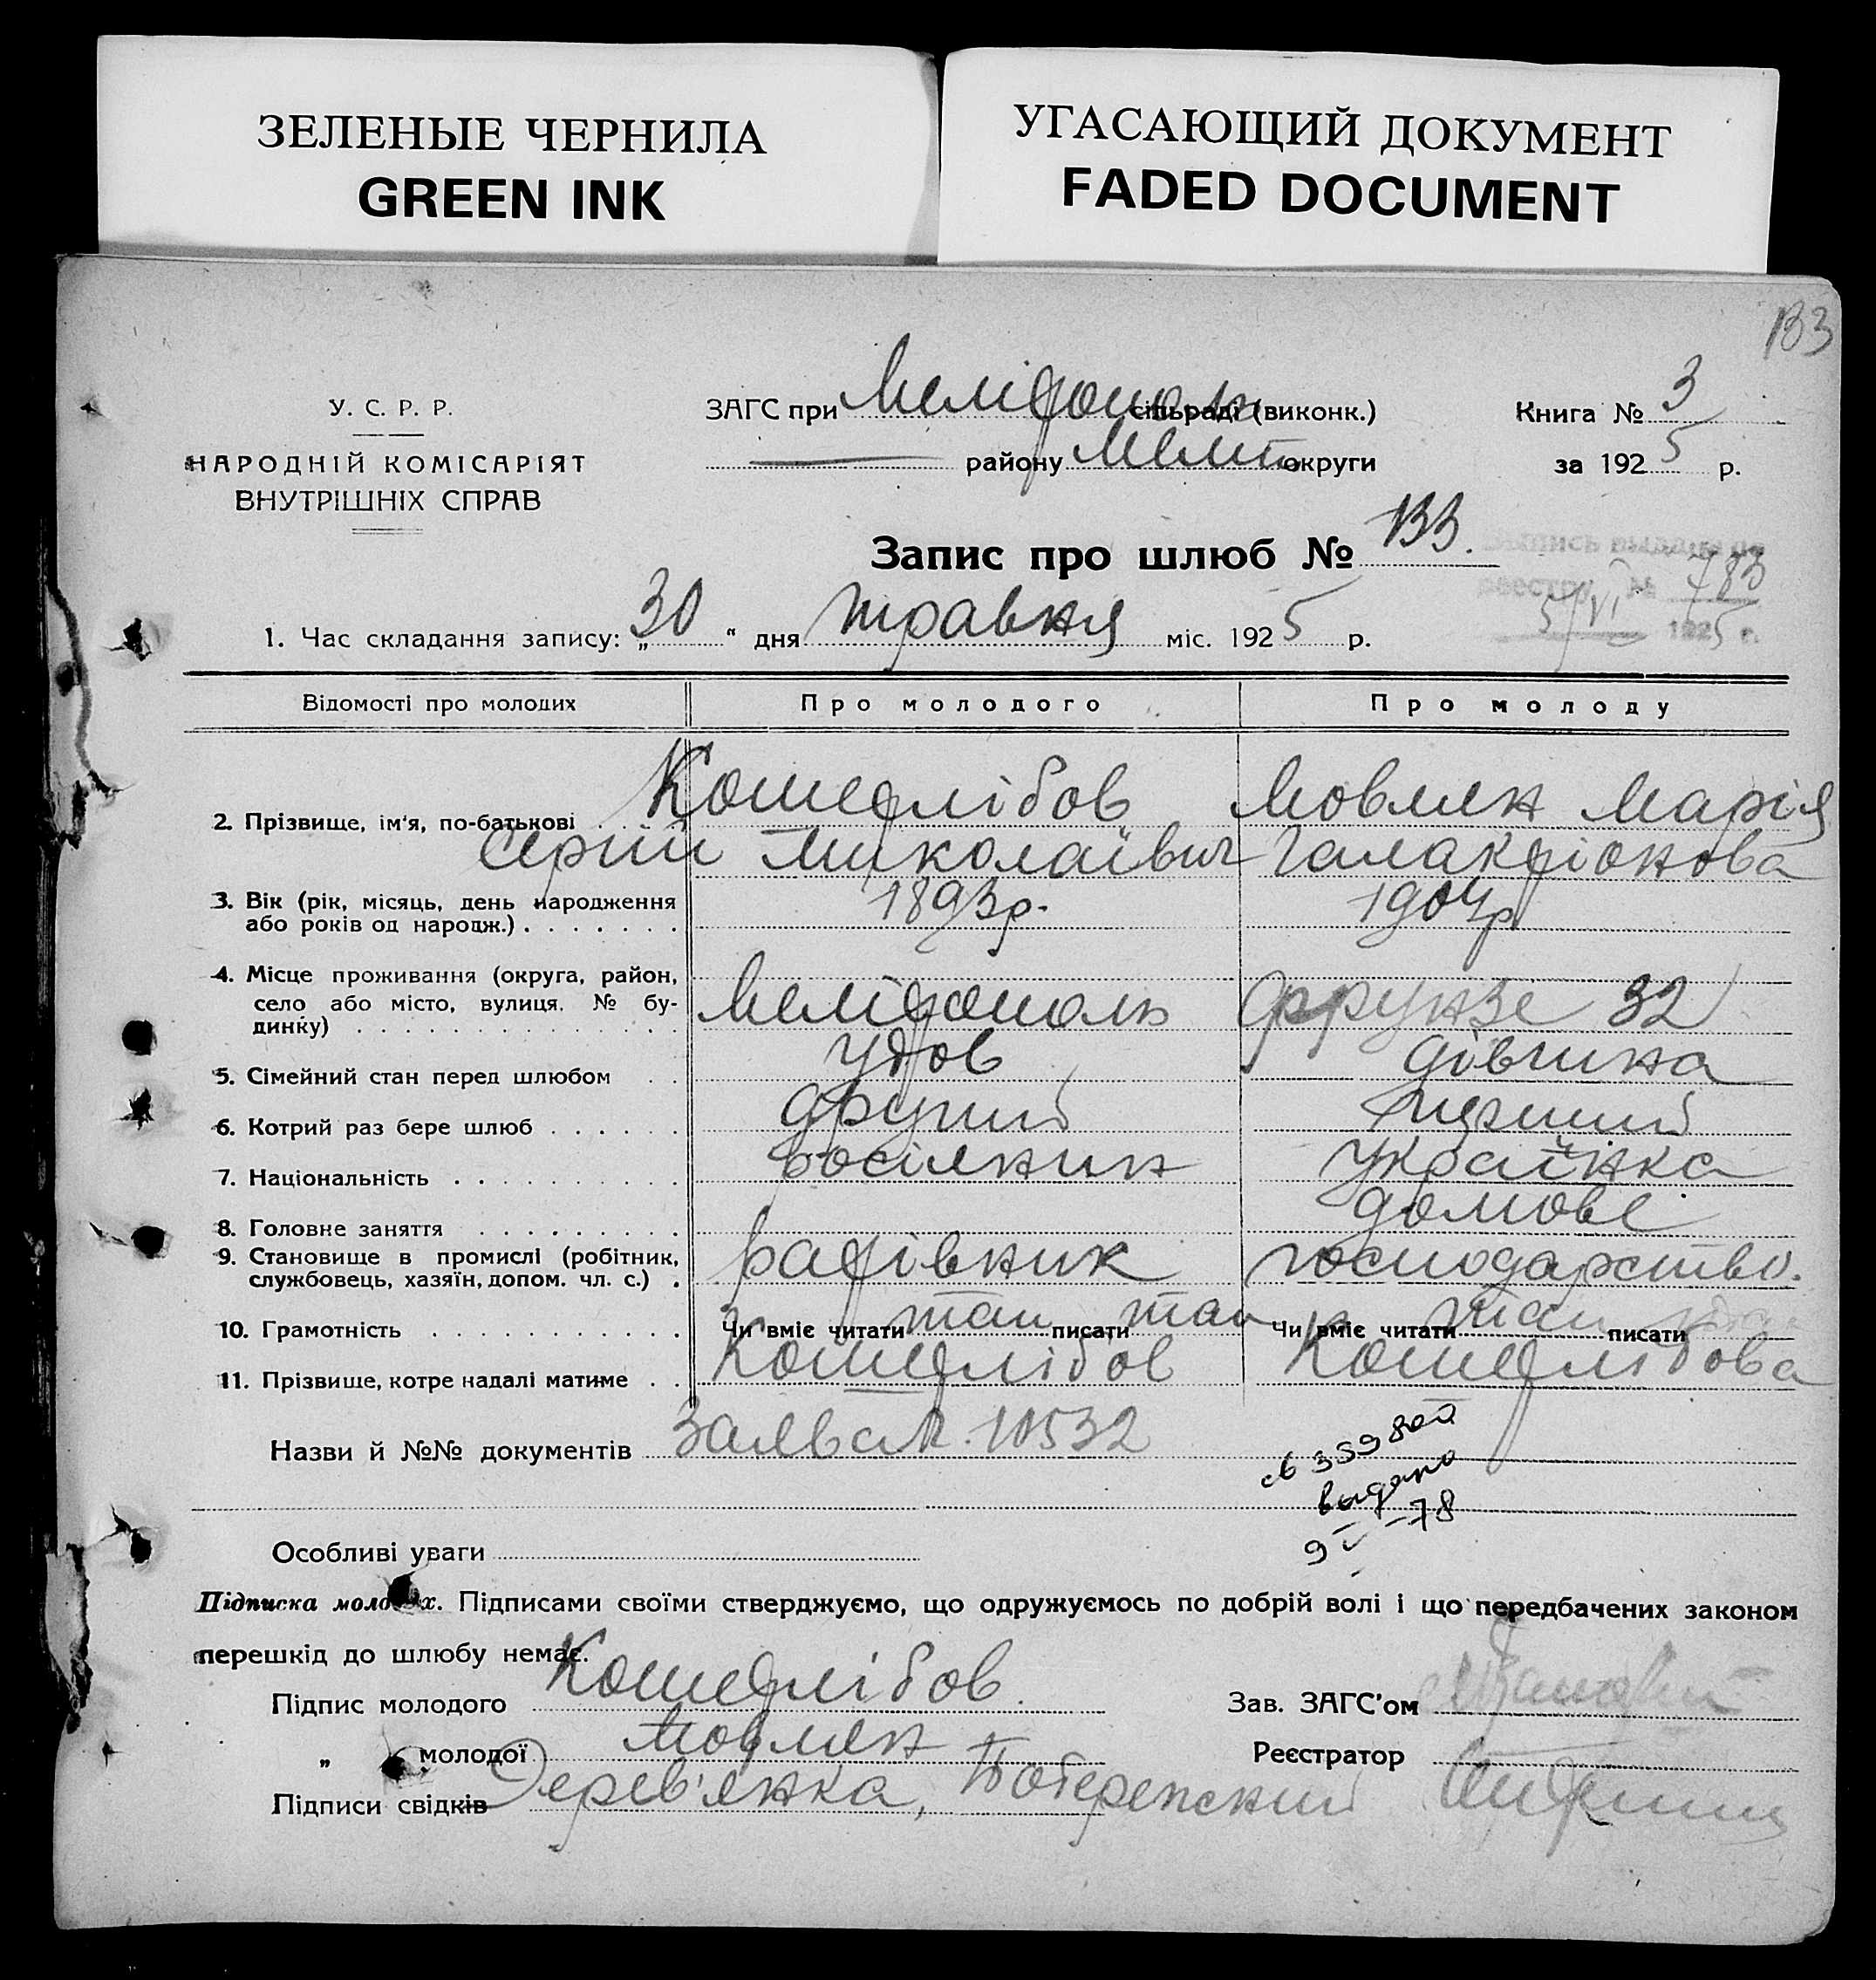 ЗЕЛЕНЫЕ ЧЕРНИЛА
GREEN INK
УГАСАЮЩИЙ ДОКУМЕНТ
FADED DOCUMENT
133
У. С. Р. Р.
НАРОДНІЙ КОМІСАРІЯТ
ВНУТРІШНІХ СПРАВ
ЗАГС при Мелітополь сільраді (виконк.)
району Меліт. округи
Книга № 3
за 1925 р.
Запис про шлюб № 133.
Выпись выдана по
реестру № 783
5/VI 1925 г.
1. Час складання запису: „30“ дня травня міс. 1925 р.
Відомості про молодих Про молодого Про молоду
2. Прізвище, ім'я, по-батькові Мовлян Марія
Сергій Миколаївич Галактіонова
3. Вік (рік, місяць, день народження 1893р. 1904р
або років од народж.)
4. Місце проживання (округа, район,
село або місто, вулиця. № будинку) Мелітополь Фрунзе 32
5. Сімейний стан перед шлюбом удов дівчина
6. Котрий раз бере шлюб другий перший
7. Національність росіянин українка
8. Головне заняття домове
9. Становище в промислі (робітник,
службовець, хазяїн, допом. чл. с.) господарство.
10. Грамотність Чи вміє читати так писати так Чи вміє читати так писати так
11. Прізвище, котре надалі матиме
Назви й №№ документів Заява № 10532
выдано
Особливі уваги
Підписка молодих. Підписами своїми стверджуємо, що одружуємось по добрій волі і що передбачених законом
перешкід до шлюбу немає.
Підпис молодого
Зав. ЗАГС'ом
„ молодої Мовлян
Реєстратор
Підписи свідків Дерев'янка,